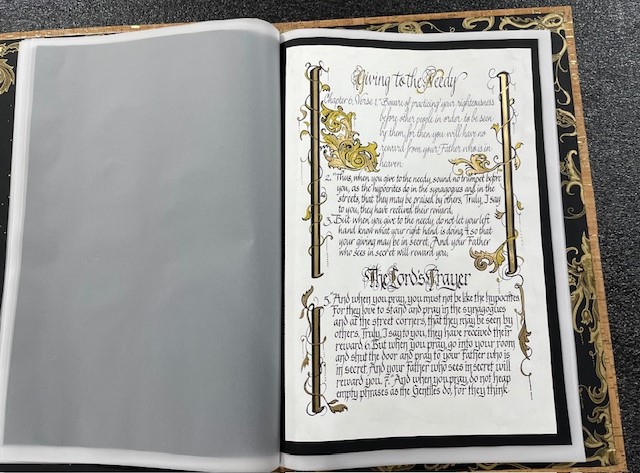 Giving to the Needy
Chapter 6, Verse 1. "Beware of practicing your righteousness
before other people in order to be seen
by them, for then you will have no
reward from your Father who is in
heaven.
2. "Thus, when you give to the needy, sound no trumpet before
you, as the hypocrites do in the synagogues and in the
streets, that they may be praised by others. Truly, I say
to you, they have received their reward.
3. But when you give to the needy, do not let your left
hand know what your right hand is doing 4. so that
your giving may be in secret. And your Father
who sees in secret will reward you.
The Lord's Prayer
5. "And when you pray, you must not be like the hypocrites
For they love to stand and pray in the synagogues
and at the street corners, that they may be seen by
others. Truly, I say to you, they have received their
reward. 6. But when you pray, go into your room
and shut the door and pray to your Father who is
in secret. And your Father who sees in secret will
reward you. 7. "And when you pray, do not heap
empty phrases as the Gentiles do, for they think